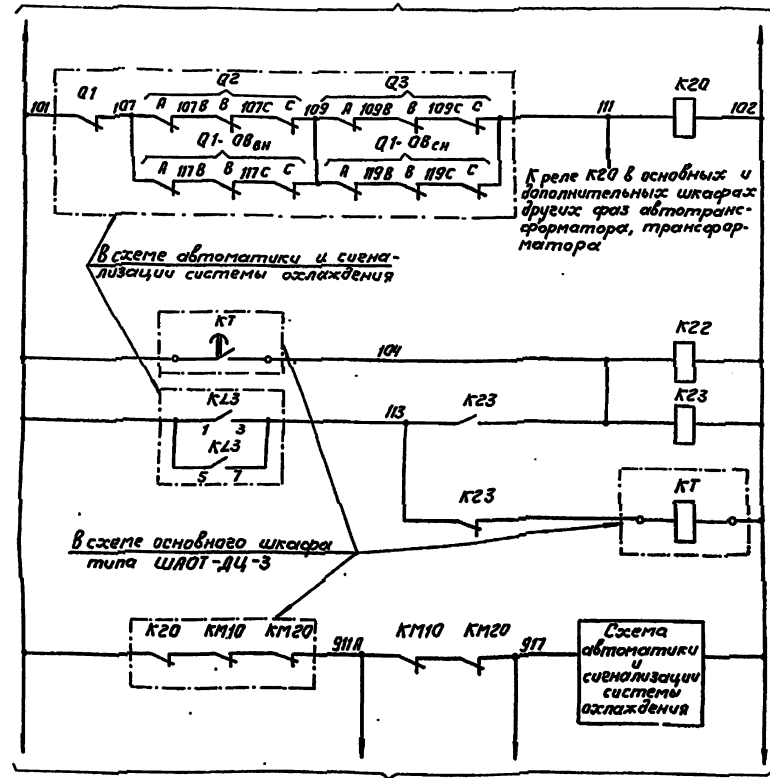 Q2 Q3 К20
101 Q1 107 А 107В В 107С С 109 А 109В В 109С С 111 102
Q1-ОВвн Q1-ОВсн
А 117В В 117С С А 119В В 119С С
К реле К20 в основных и
дополнительных шкафах
других фаз автотранс-
форматора, трансфор-
матора
В схеме автоматики и сигна-
лизации системы охлаждения
КТ 104 К22
KL3 113 К23 К23
1 3
KL3
5 7
К23 КТ
В схеме основного шкафа
типа ШАОТ-ДЦ-3
К20 КМ10 КМ20 911А КМ10 КМ20 917
Схема
автоматики
и
сигнализации
системы
охлаждения